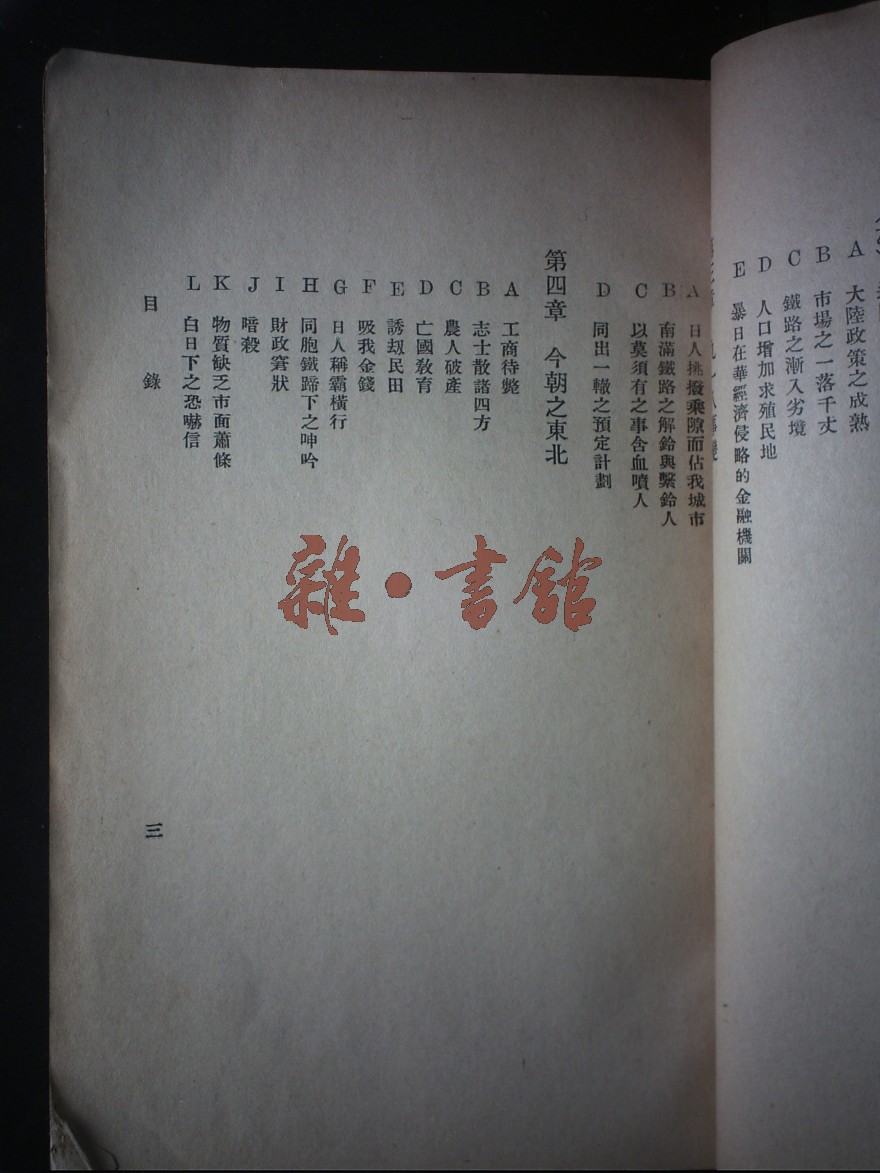 A 大陸政策之成熟
B 市場之一落千丈
C 鐵路之漸入劣境
D 人口增加求殖民地
E 暴日在華經濟侵略的金融機關
A 日人挑撥乘隙而佔我城市
B 南滿鐵路之解鈴與繫鈴人
C 以莫須有之事含血噴人
D 同出一轍之預定計劃
第四章 今朝之東北
A 工商待斃
B 志士散諸四方
C 農人破產
D 亡國敎育
E 誘刼民田
F 吸我金錢
G 日人稱霸橫行
H 同胞鐵蹄下之呻吟
I 財政窘狀
J 暗殺
K 物質缺乏市面蕭條
L 白日下之恐嚇信
目錄
三
雜·書館